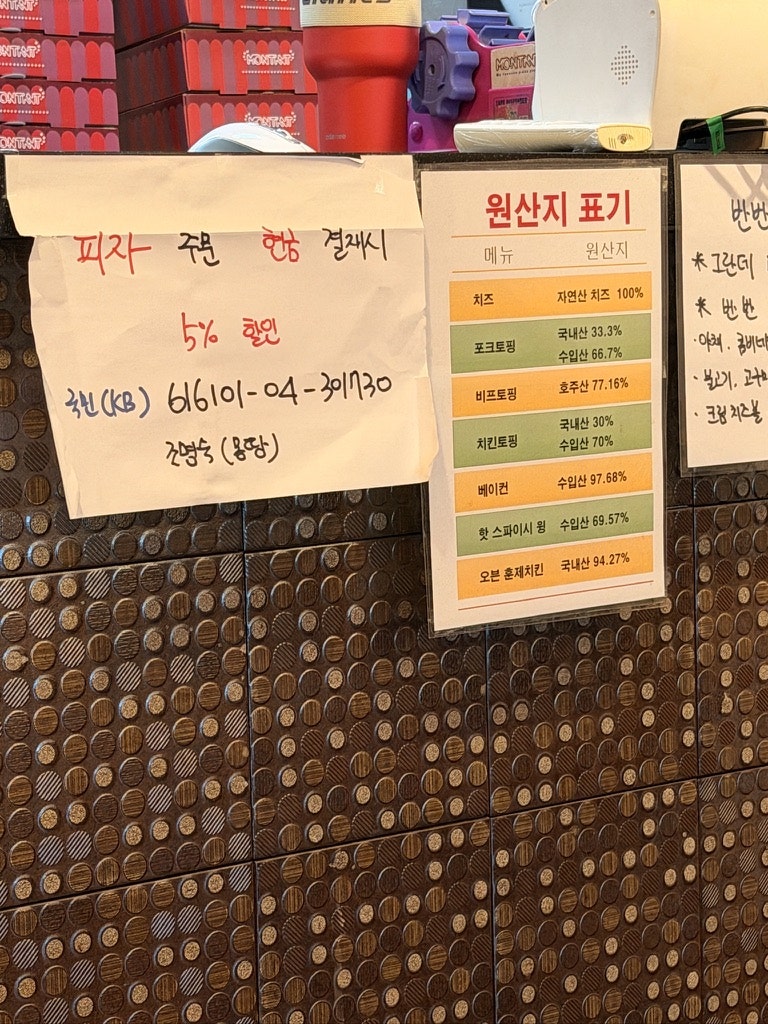 MONTANT
MONTANT
MONTANT
MONTANT
MONTANT
MONTANT
피자 주문 현금 결재시
5% 할인
국민(KB) 616101-04-301730
조명숙(몽땅)
원산지 표기
메뉴 원산지
치즈 자연산 치즈 100%
포크토핑 국내산 33.3%
수입산 66.7%
비프토핑 호주산 77.16%
치킨토핑 국내산 30%
수입산 70%
베이컨 수입산 97.68%
핫 스파이시 윙 수입산 69.57%
오븐 훈제치킨 국내산 94.27%
반반
* 그란데
* 반반
·야채, 콤비네
·불고기, 고구마
·크림치즈볼